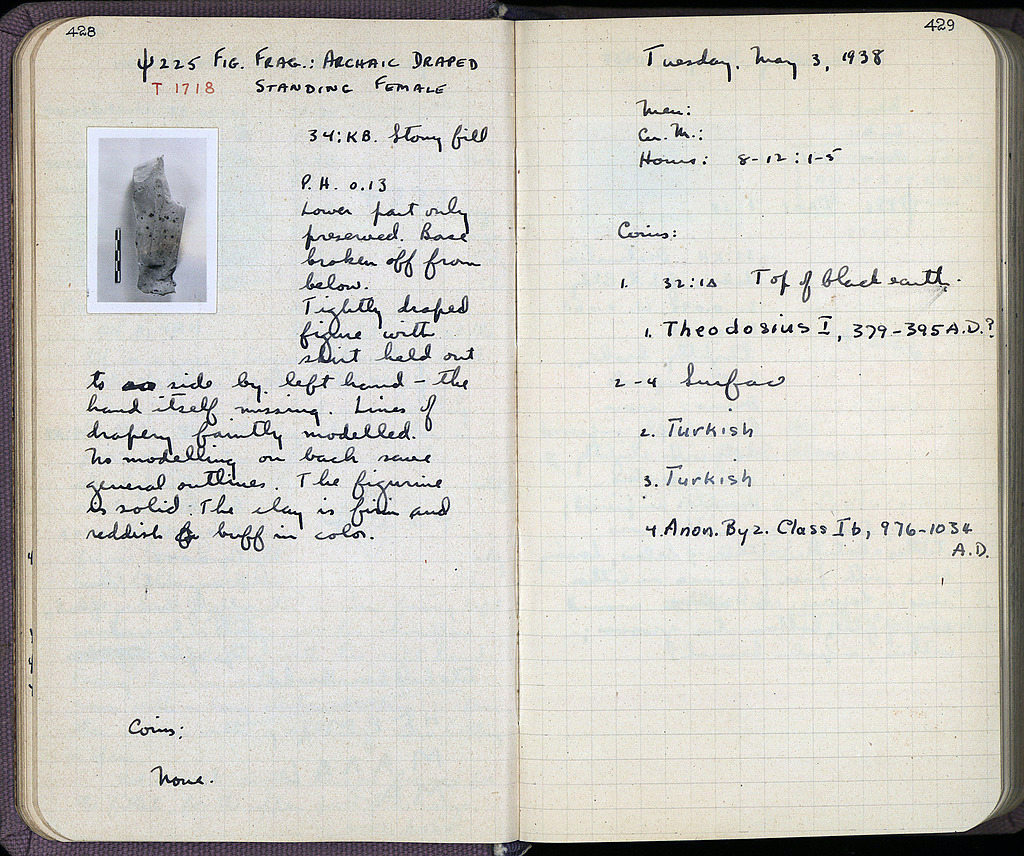 428
ψ225 FIG. FRAG.: ARCHAIC DRAPED
T 1718 STANDING FEMALE
34:KB. Stony fill
P.H. 0.13
Lower part only
preserved. Base
broken off from
below.
Tightly draped
figure with
skirt held out
to side by left hand – the
hand itself missing. Lines of
drapery faintly modelled.
No modelling on back save
general outlines. The figurine
is solid. The clay is firm and
reddish buff in color.
Coins:
None.
429
Tuesday, May 3, 1938
Men:
Cu. M.:
Hours: 8-12:1-5
Coins:
1. 32:ΙΔ Top of black earth.
1. Theodosius I, 379-395 A.D.?
2-4 Surface
2. Turkish
3. Turkish
4. Anon. Byz. Class Ib, 976-1034
A.D.